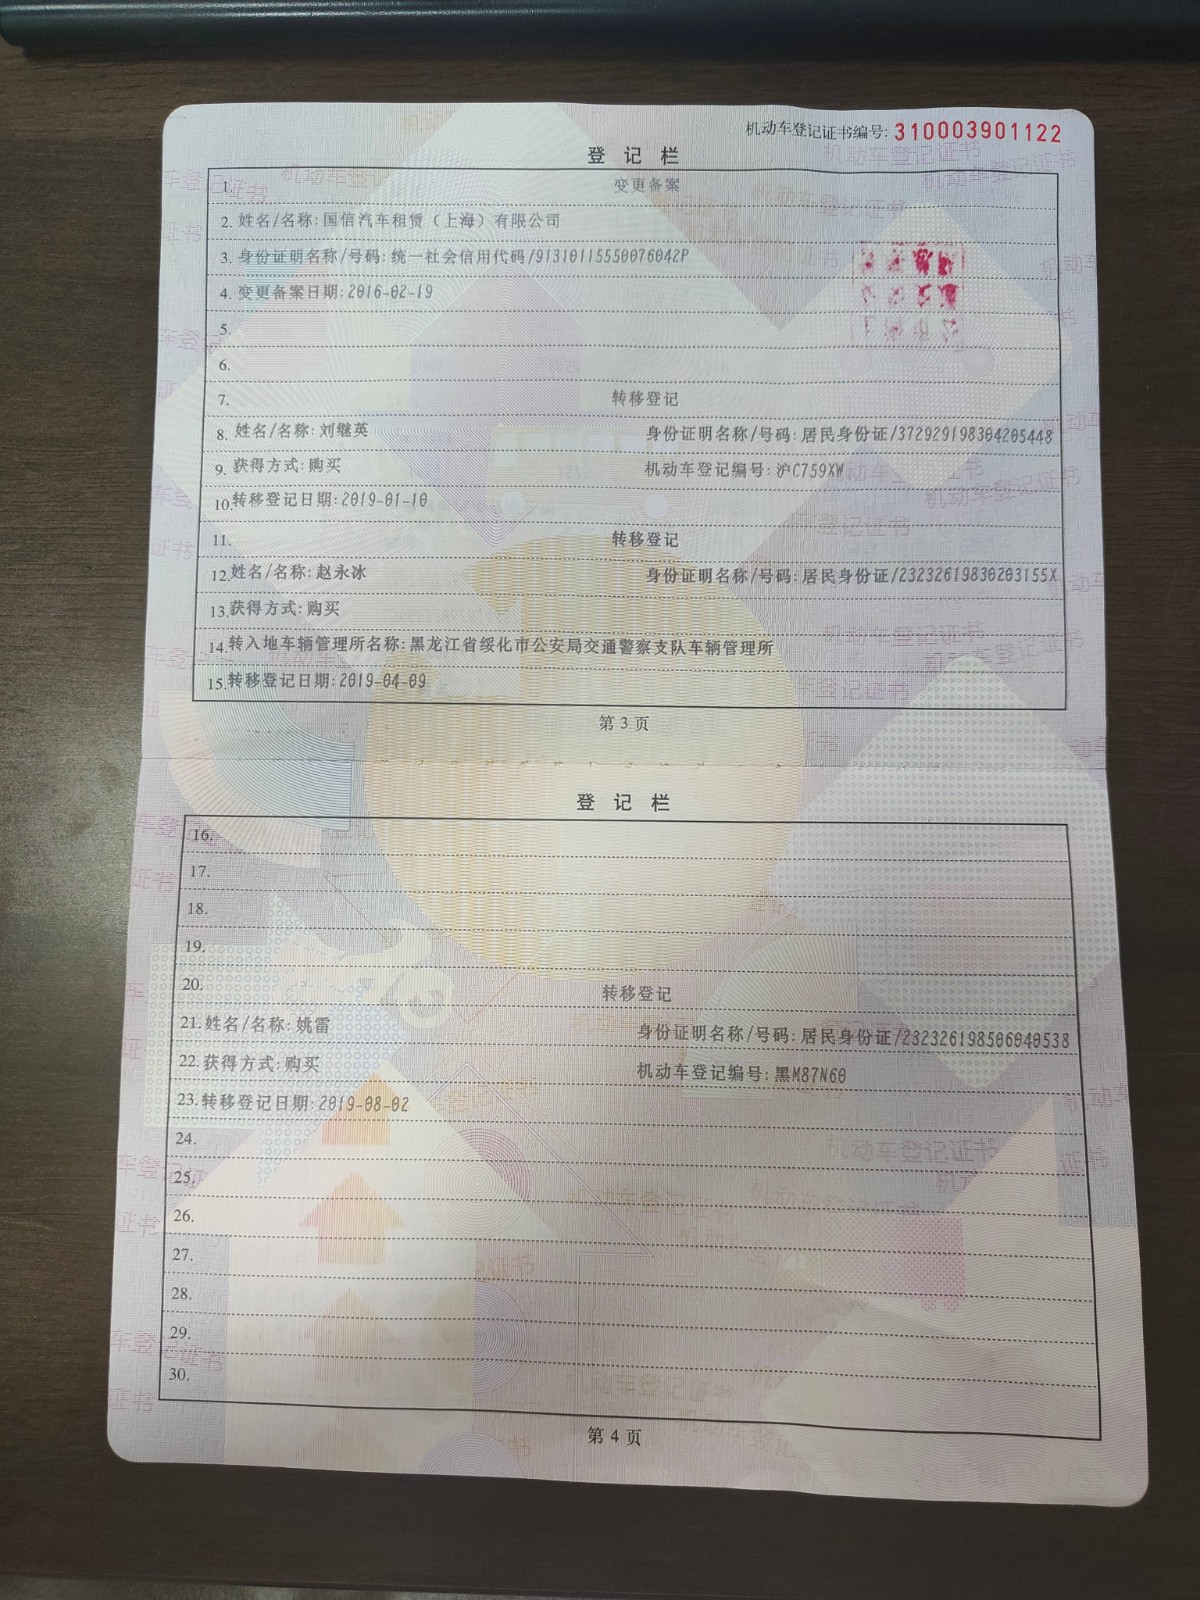 机动车登记证书编号: 310003901122
登 记 栏
1. 变更备案
2. 姓名/名称: 国信汽车租赁（上海）有限公司
3. 身份证明名称/号码: 统一社会信用代码/91310115550076042P
4. 变更备案日期: 2016-02-19
5.
6.
7. 转移登记
8. 姓名/名称: 刘继英 身份证明名称/号码: 居民身份证/372929198304205448
9. 获得方式: 购买 机动车登记编号: 沪C759XW
10. 转移登记日期: 2019-01-10
11. 转移登记
12. 姓名/名称: 赵永冰 身份证明名称/号码: 居民身份证/23232619830203155X
13. 获得方式: 购买
14. 转入地车辆管理所名称: 黑龙江省绥化市公安局交通警察支队车辆管理所
15. 转移登记日期: 2019-04-09
第 3 页
登 记 栏
16.
17.
18.
19.
20. 转移登记
21. 姓名/名称: 姚雷 身份证明名称/号码: 居民身份证/232326198506040538
22. 获得方式: 购买 机动车登记编号: 黑M87N60
23. 转移登记日期: 2019-08-02
24.
25.
26.
27.
28.
29.
30.
第 4 页